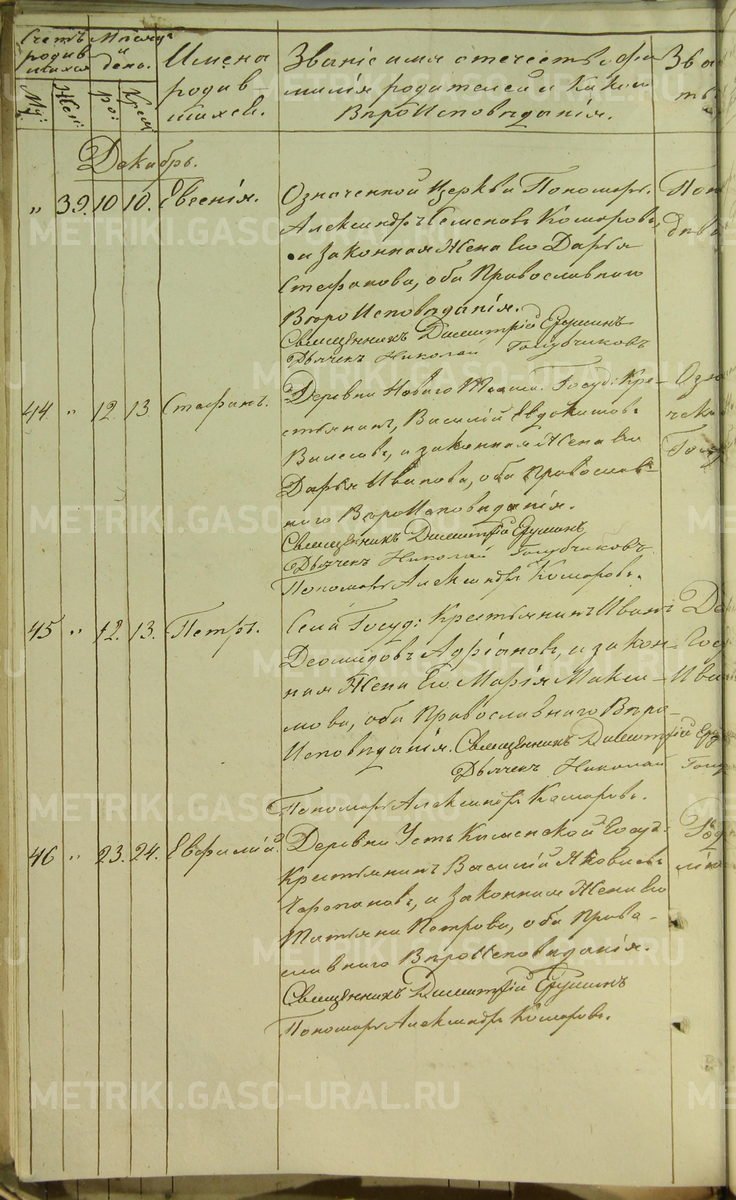 Счетъ родив шихся
Мѣсяцъ и день.
Муж: Жен: ро: Крещ
Имена родив шихся.
Званіе имя отчество и фа
милія родителей и какого
Вѣроисповѣданія.
Зва
Декабрь.
" 39. 10. 10. Евгенія.
Означенной Церкви Пономарь
Александръ Семеновъ Комаровъ
и законная жена его Дарья
Стефанова, оба Православнаго
Вѣроисповѣданія.
Священникъ Димитрій
Дьячекъ Николай Голубчиковъ
44 " 12. 13. Стефанъ.
Деревни Новаго Госуд: Кре-
стьянинъ, Василій Евдокимовъ
и законная жена его
Дарья Иванова, оба Православ-
наго Вѣроисповѣданія.
Священникъ Димитрій
Дьячекъ Николай Голубчиковъ
Пономарь Александръ Комаровъ.
45 " 12. 13. Петръ.
Села Госуд: Крестьянинъ Иванъ
Деомидовъ Адріановъ, и закон-
ная жена его Марія Макси-
мова, оба Православнаго Вѣро-
Исповѣданія. Священникъ Димитрій
Дьячекъ Николай
Пономарь Александръ Комаровъ.
46 " 23. 24. Евфимій.
Деревни Усть Госуд:
Крестьянинъ Василій Яковлевъ
и законная жена его
Татьяна Петрова, оба Право-
славнаго Вѣроисповѣданія.
Священникъ Димитрій
Пономарь Александръ Комаровъ.
METRIKI.GASO-URAL.RU